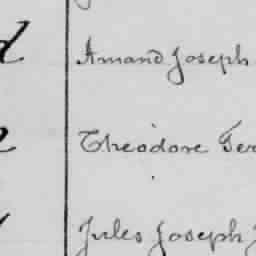 Amand Joseph
Theodore
Jules Joseph